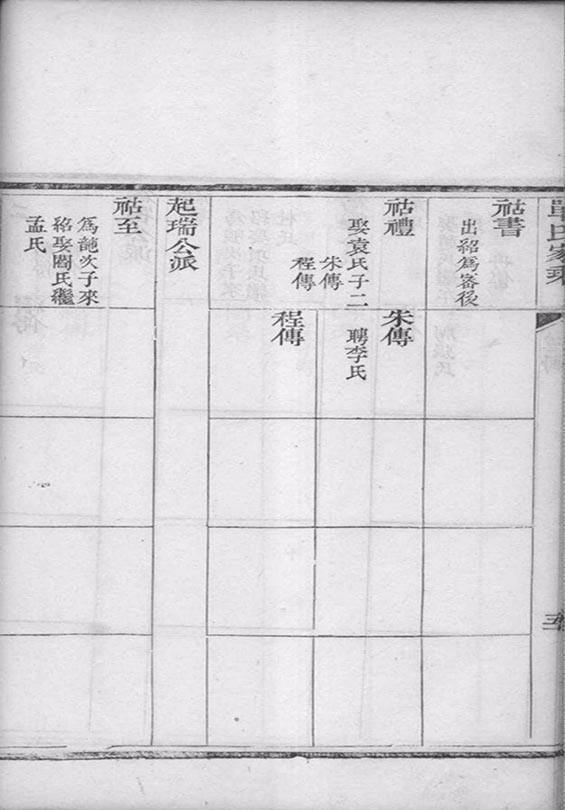 單氏家乘
祜書
出紹為審後
祜禮
娶袁氏子二
朱傳
程傳
朱傳
聘李氏
程傳
起瑞公派
祜至
為龍次子來
紹娶閻氏繼
孟氏